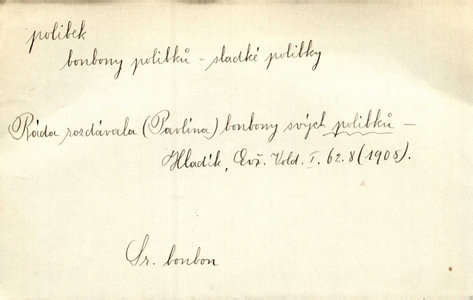 polibek
bonbony polibků - sladké polibky
Ráda rozdávala (Pavlína) bonbony svých polibků -
Hladík, Evž. Vold. I. 62. 8 (1905).
Sr. bonbon